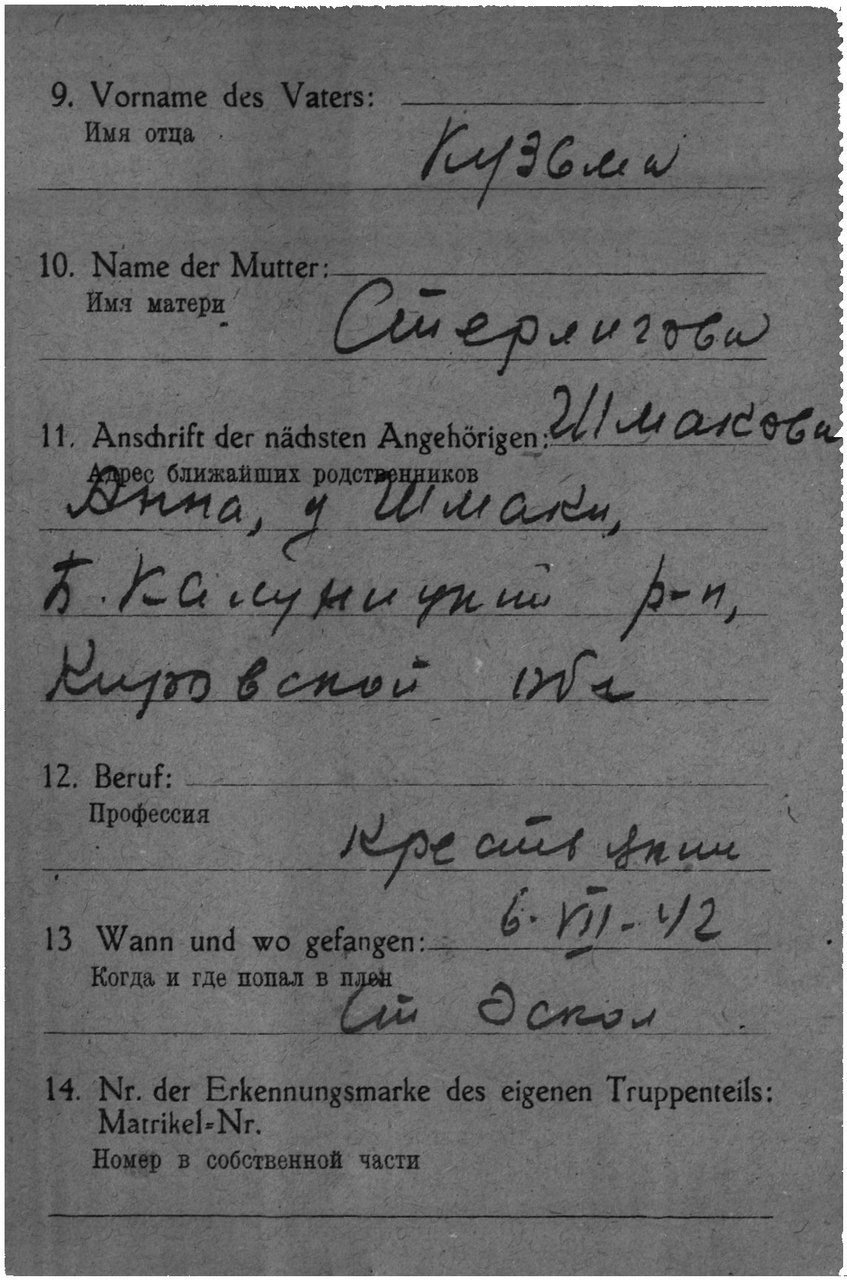 9. Vorname des Vaters:
Имя отца
Кузьма
10. Name der Mutter:
Имя матери
Стерлигова
11. Anschrift der nächsten Angehörigen: Шмакова
Адрес ближайших родственников
Анна, д Шмаки,
Б. Калуницкий р-н,
Кировской обл
12. Beruf:
Профессия
Крестьянин
6. VII-42
13 Wann und wo gefangen:
Когда и где попал в плен
Ст Оскол
14. Nr. der Erkennungsmarke des eigenen Truppenteils:
Matrikel-Nr.
Номер в собственной части